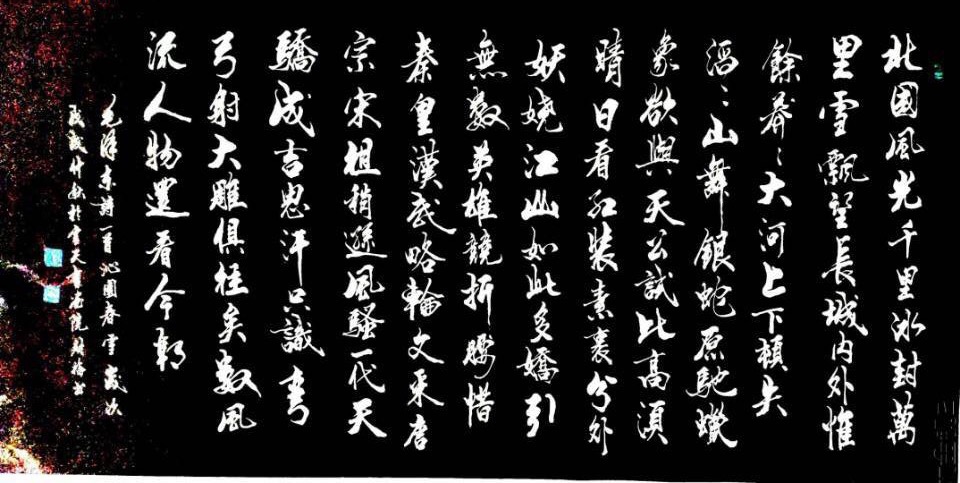 北國風光千里冰封萬
里雪飄望長城內外惟
餘莽〻大河上下頓失
滔〻山舞銀蛇原馳蠟
象欲與天公試比高須
晴日看紅裝素裹分外
妖嬈江山如此多嬌引
無數英雄競折腰惜
秦皇漢武略輸文采唐
宗宋祖稍遜風騷一代天
驕成吉思汗只識彎
弓射大雕俱往矣數風
流人物還看今朝
毛澤東詩一首沁園春雪歲次
戊戌仲秋於雲天書畫院書